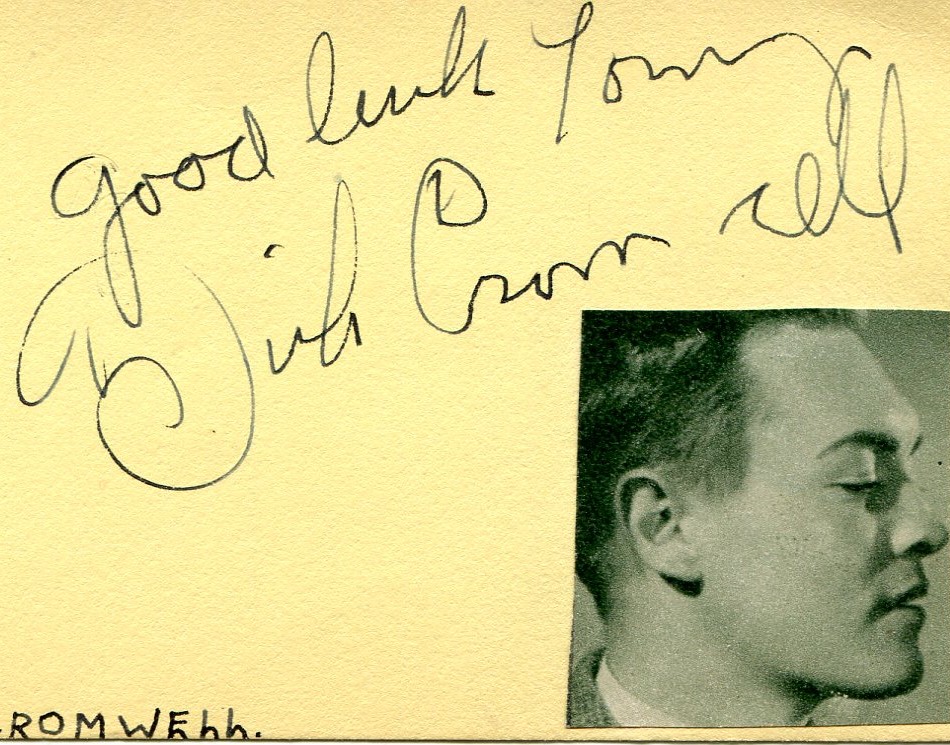 Good luck Tommy
Dick Cromwell
CROMWELL.